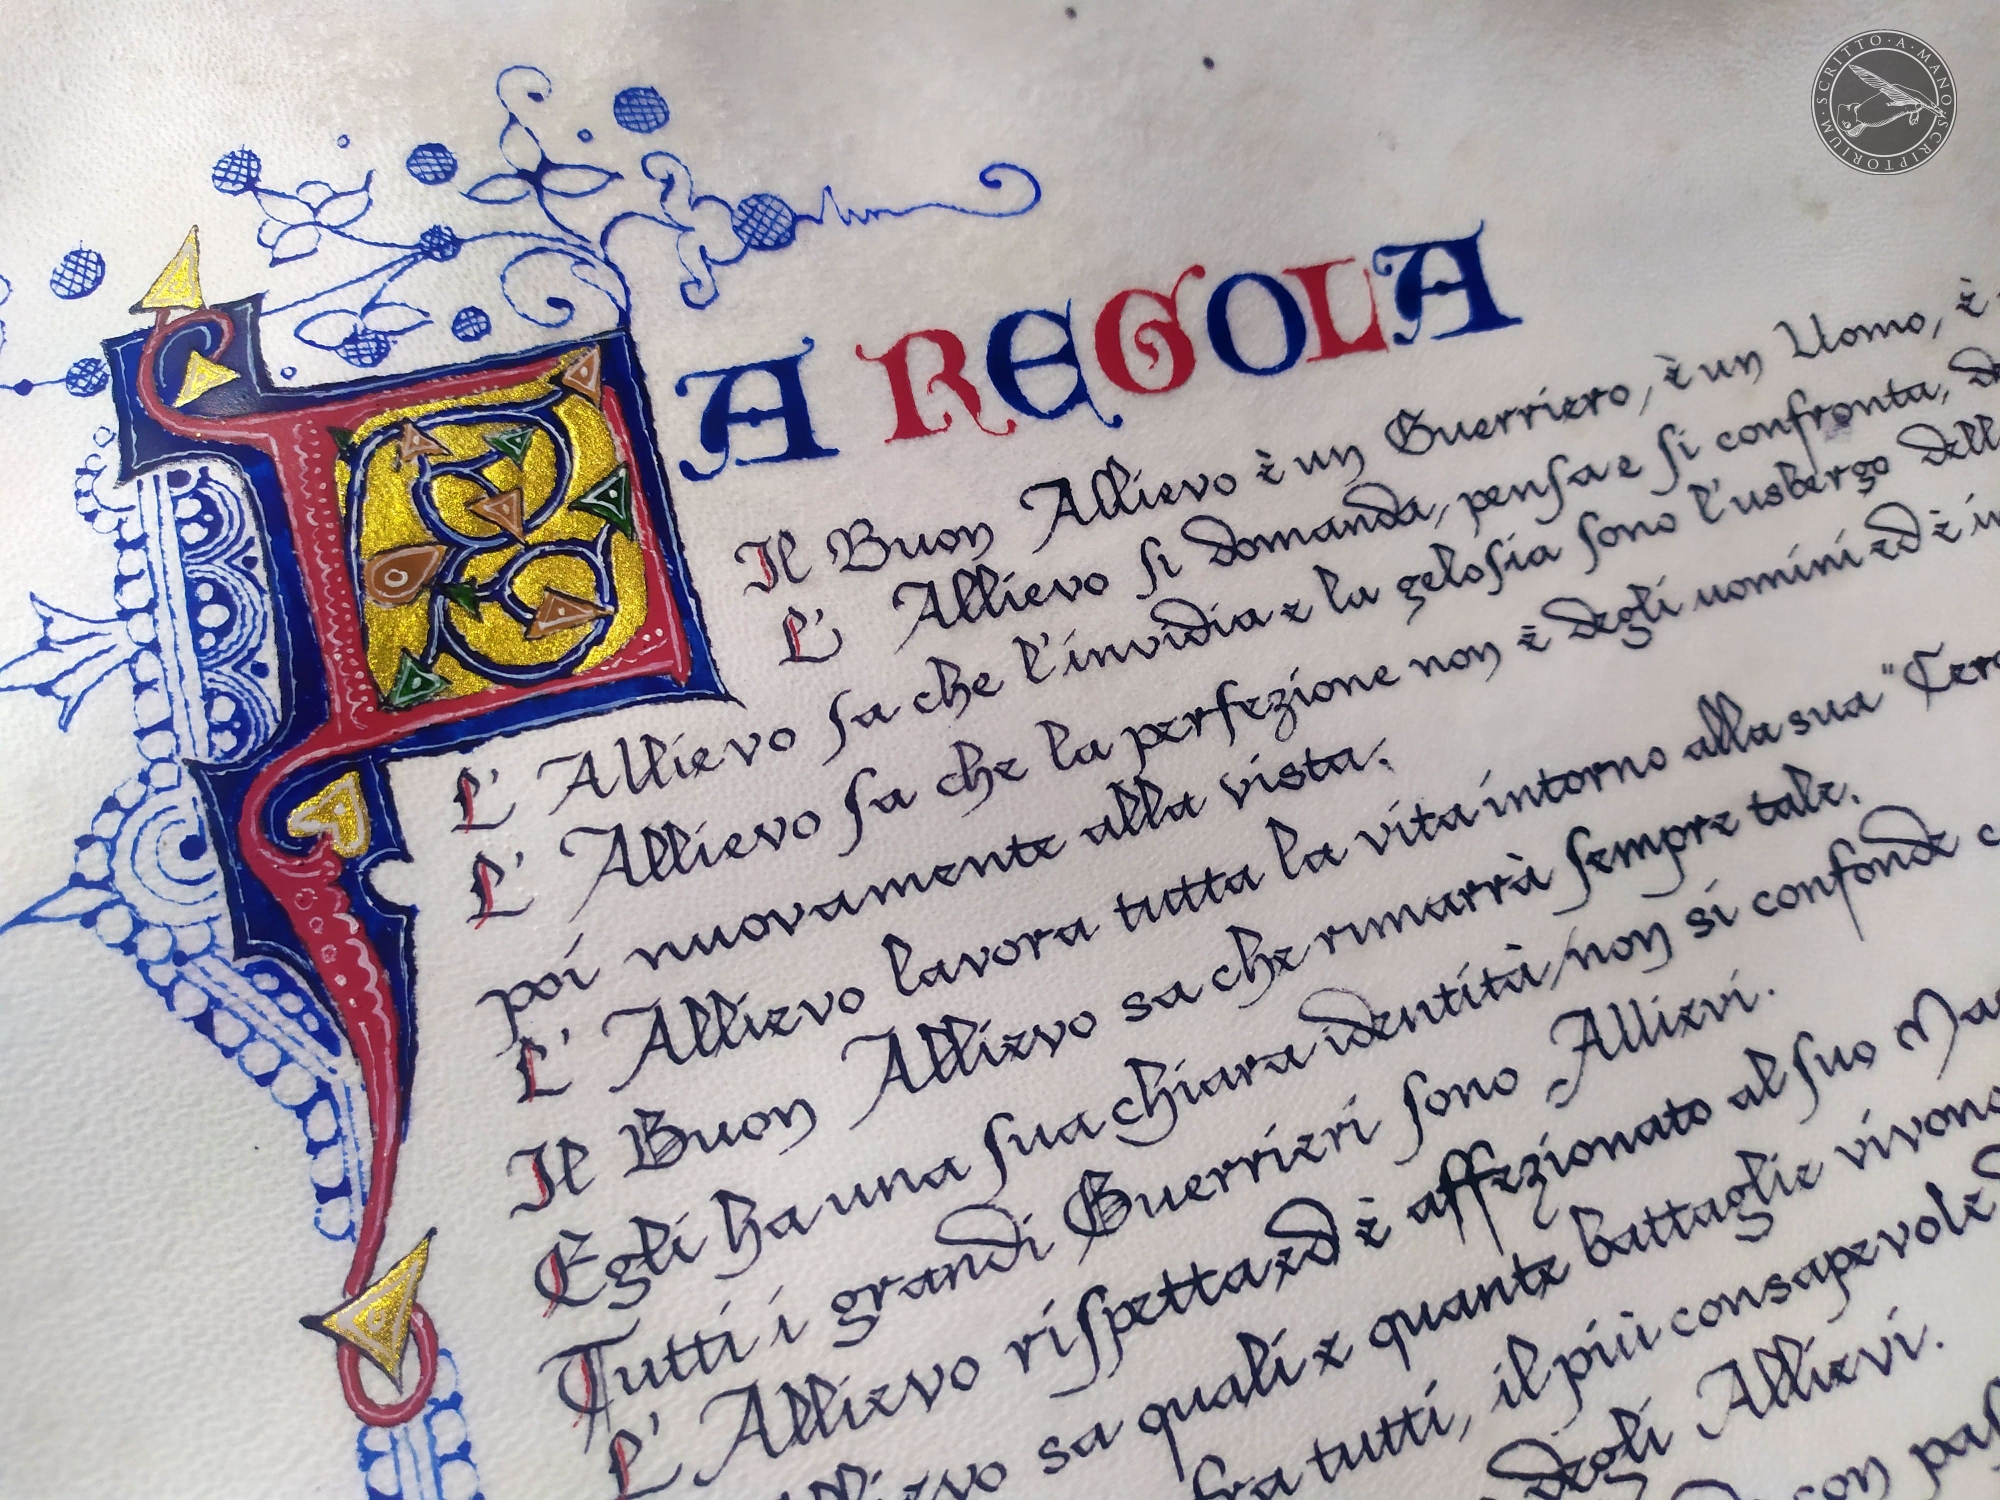 SCRITTO · A · MANO · SCRIPTORIUM ·
LA REGOLA
Il Buon Allievo è un Guerriero, è un Uomo, è
L' Allievo si domanda, pensa e si confronta,
L' Allievo sa che l'invidia e la gelosia sono l'usbergo
L' Allievo sa che la perfezione non è degli uomini ed è
poi nuovamente alla vista.
L' Allievo lavora tutta la vita intorno alla sua
Il Buon Allievo sa che rimarrà sempre tale.
Egli ha una sua chiara identità, non si confonde
Tutti i grandi Guerrieri sono Allievi.
L' Allievo rispetta ed è affezionato al suo
sa quali e quante battaglie vivono
fra tutti, il più consapevole
degli Allievi.
con